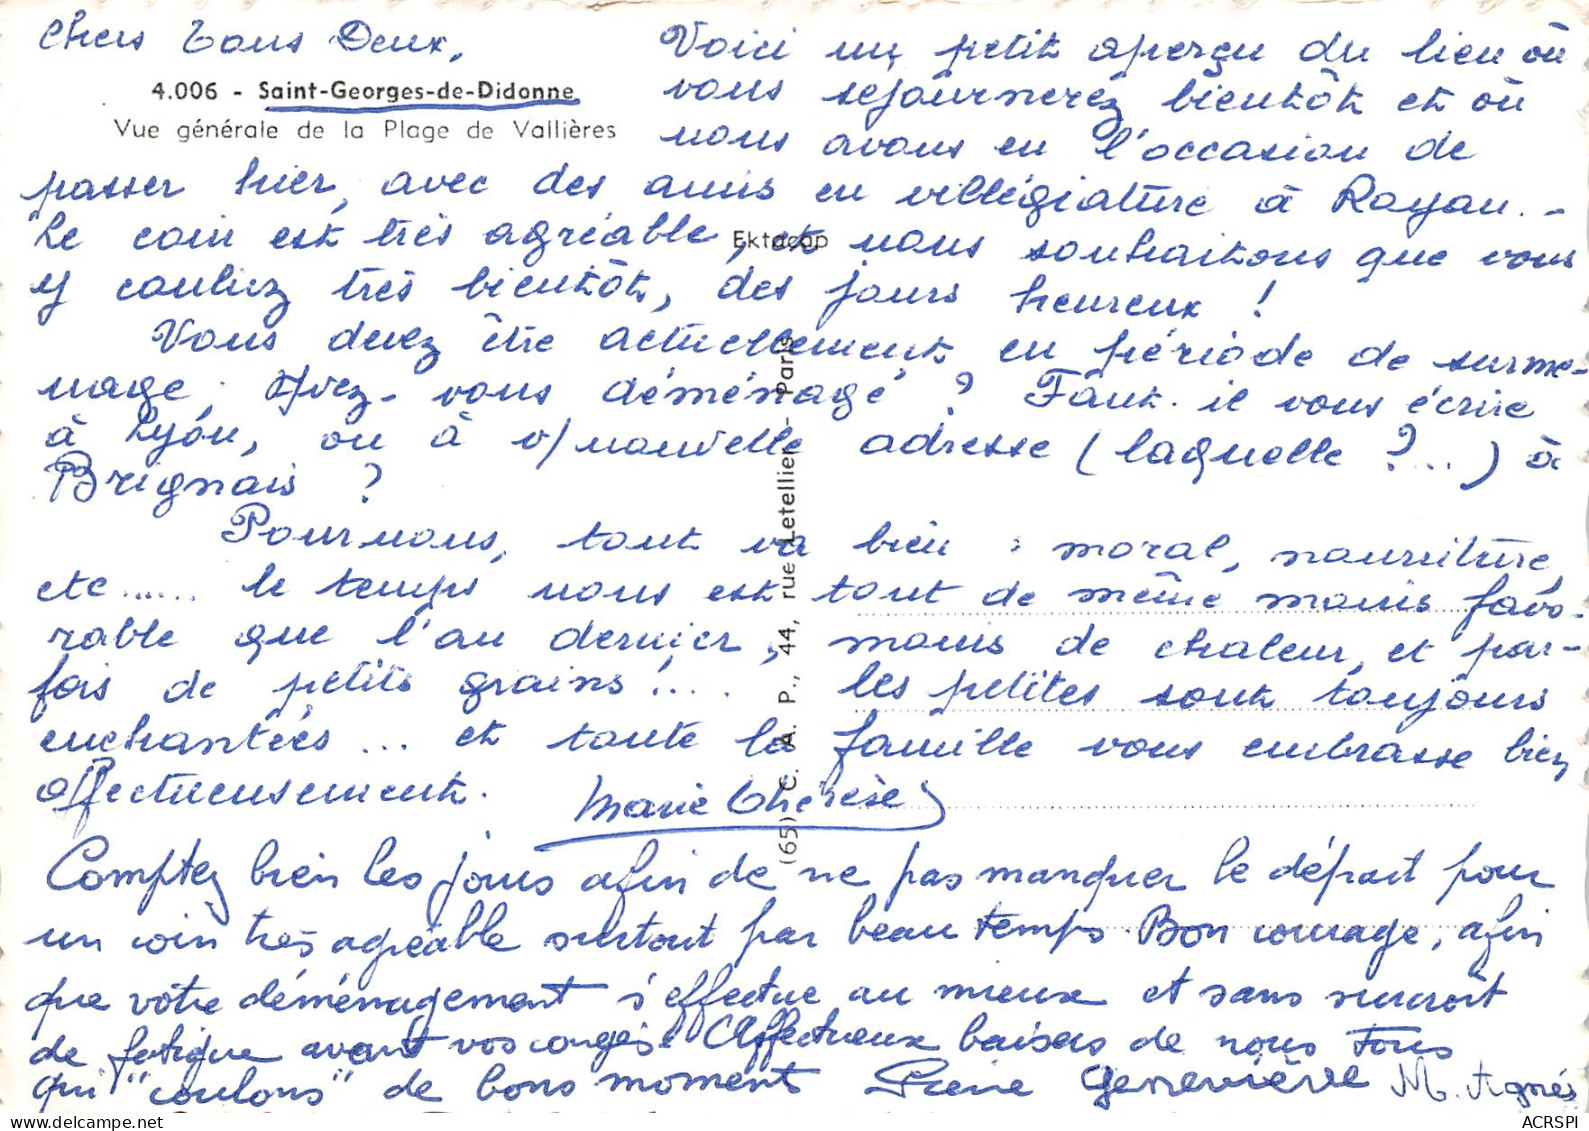 Chers Tous Deux,
4.006 - Saint-Georges-de-Didonne
Vue générale de la Plage de Vallières
Voici un petit aperçu du lieu où
vous séjournerez bientôt et où
nous avons eu l'occasion de
passer hier, avec des amis en villégiature à Royan. -
Le coin est très agréable, et nous souhaitons que vous
y couliez très bientôt, des jours heureux !
Vous devez être actuellement en période de surme-
nage. Avez-vous déménagé ? Faut-il vous écrire
à Lyon, ou à v/ nouvelle adresse (laquelle ?...) à
Brignais ?
Pour nous, tout va bien : moral, nourriture,
etc...... le temps nous est tout de même moins favo-
rable que l'an dernier, moins de chaleur, et par-
fois de petits grains !.... les petites sont toujours
enchantées ... et toute la famille vous embrasse bien
affectueusement. Marie Thérèse
Comptez bien les jours afin de ne pas manquer le départ pour
un coin très agréable surtout par beau temps. Bon courage, afin
que votre déménagement s'effectue au mieux et sans surcroît
de fatigue avant vos congés. Affectueux baisers de nous tous
qui "coulons" de bons moment Geneviève M. Agnés
Ektacap
(65) C. A. P., 44, rue Letellier - Paris
ACRSPI